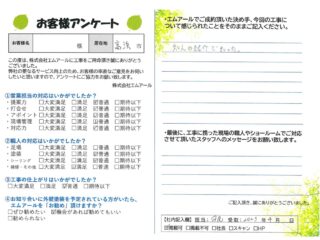 お客様アンケート
お客様名
様
居住地
市
この度は、株式会社エムアールに工事をご用命頂き誠にありがとう
ございました。
弊社の更なるサービス向上のため、お客様の率直なご意見をお伺い
したいと思いますので、アンケートにご協力をお願い致します。
株式会社エムアール
①営業担当の対応はいかがでしたか?
・提案力 □大変満足 □満足 ☑普通 □期待以下
・打合せ □大変満足 □満足 ☑普通 □期待以下
・アポイント □大変満足 □満足 ☑普通 □期待以下
・現場管理 □大変満足 □満足 ☑普通 □期待以下
・対応力 □大変満足 □満足 ☑普通 □期待以下
②職人の対応はいかがでしたか?
・足場 □大変満足 □満足 ☑普通 □期待以下
・塗装 □大変満足 □満足 ☑普通 □期待以下
・シーリング □大変満足 □満足 □期待以下
□大変満足 □満足 □期待以下
③工事の仕上がりはいかがでしたか?
□大変満足 □満足 ☑普通 □期待以下
④お知り合いに外壁塗装を予定されている方がいたら、
エムアールを「お勧め」頂けますか?
□ぜひ勧めたい ☑機会があれば勧めてもいい
□勧められない
・エムアールでご成約頂いた決め手、今回の工事に
ついて感じられたことをそのままご記入ください。
知人の紹介でした。
・最後に、工事に携った現場の職人やショールームでご対応
させて頂いたスタッフへのメッセージをお願い致します。
ご記入頂き、誠にありがとうございました。
【社内記入欄】担当: 受取:
☑掲載可 □掲載不可 □社長 □スキャン □HP